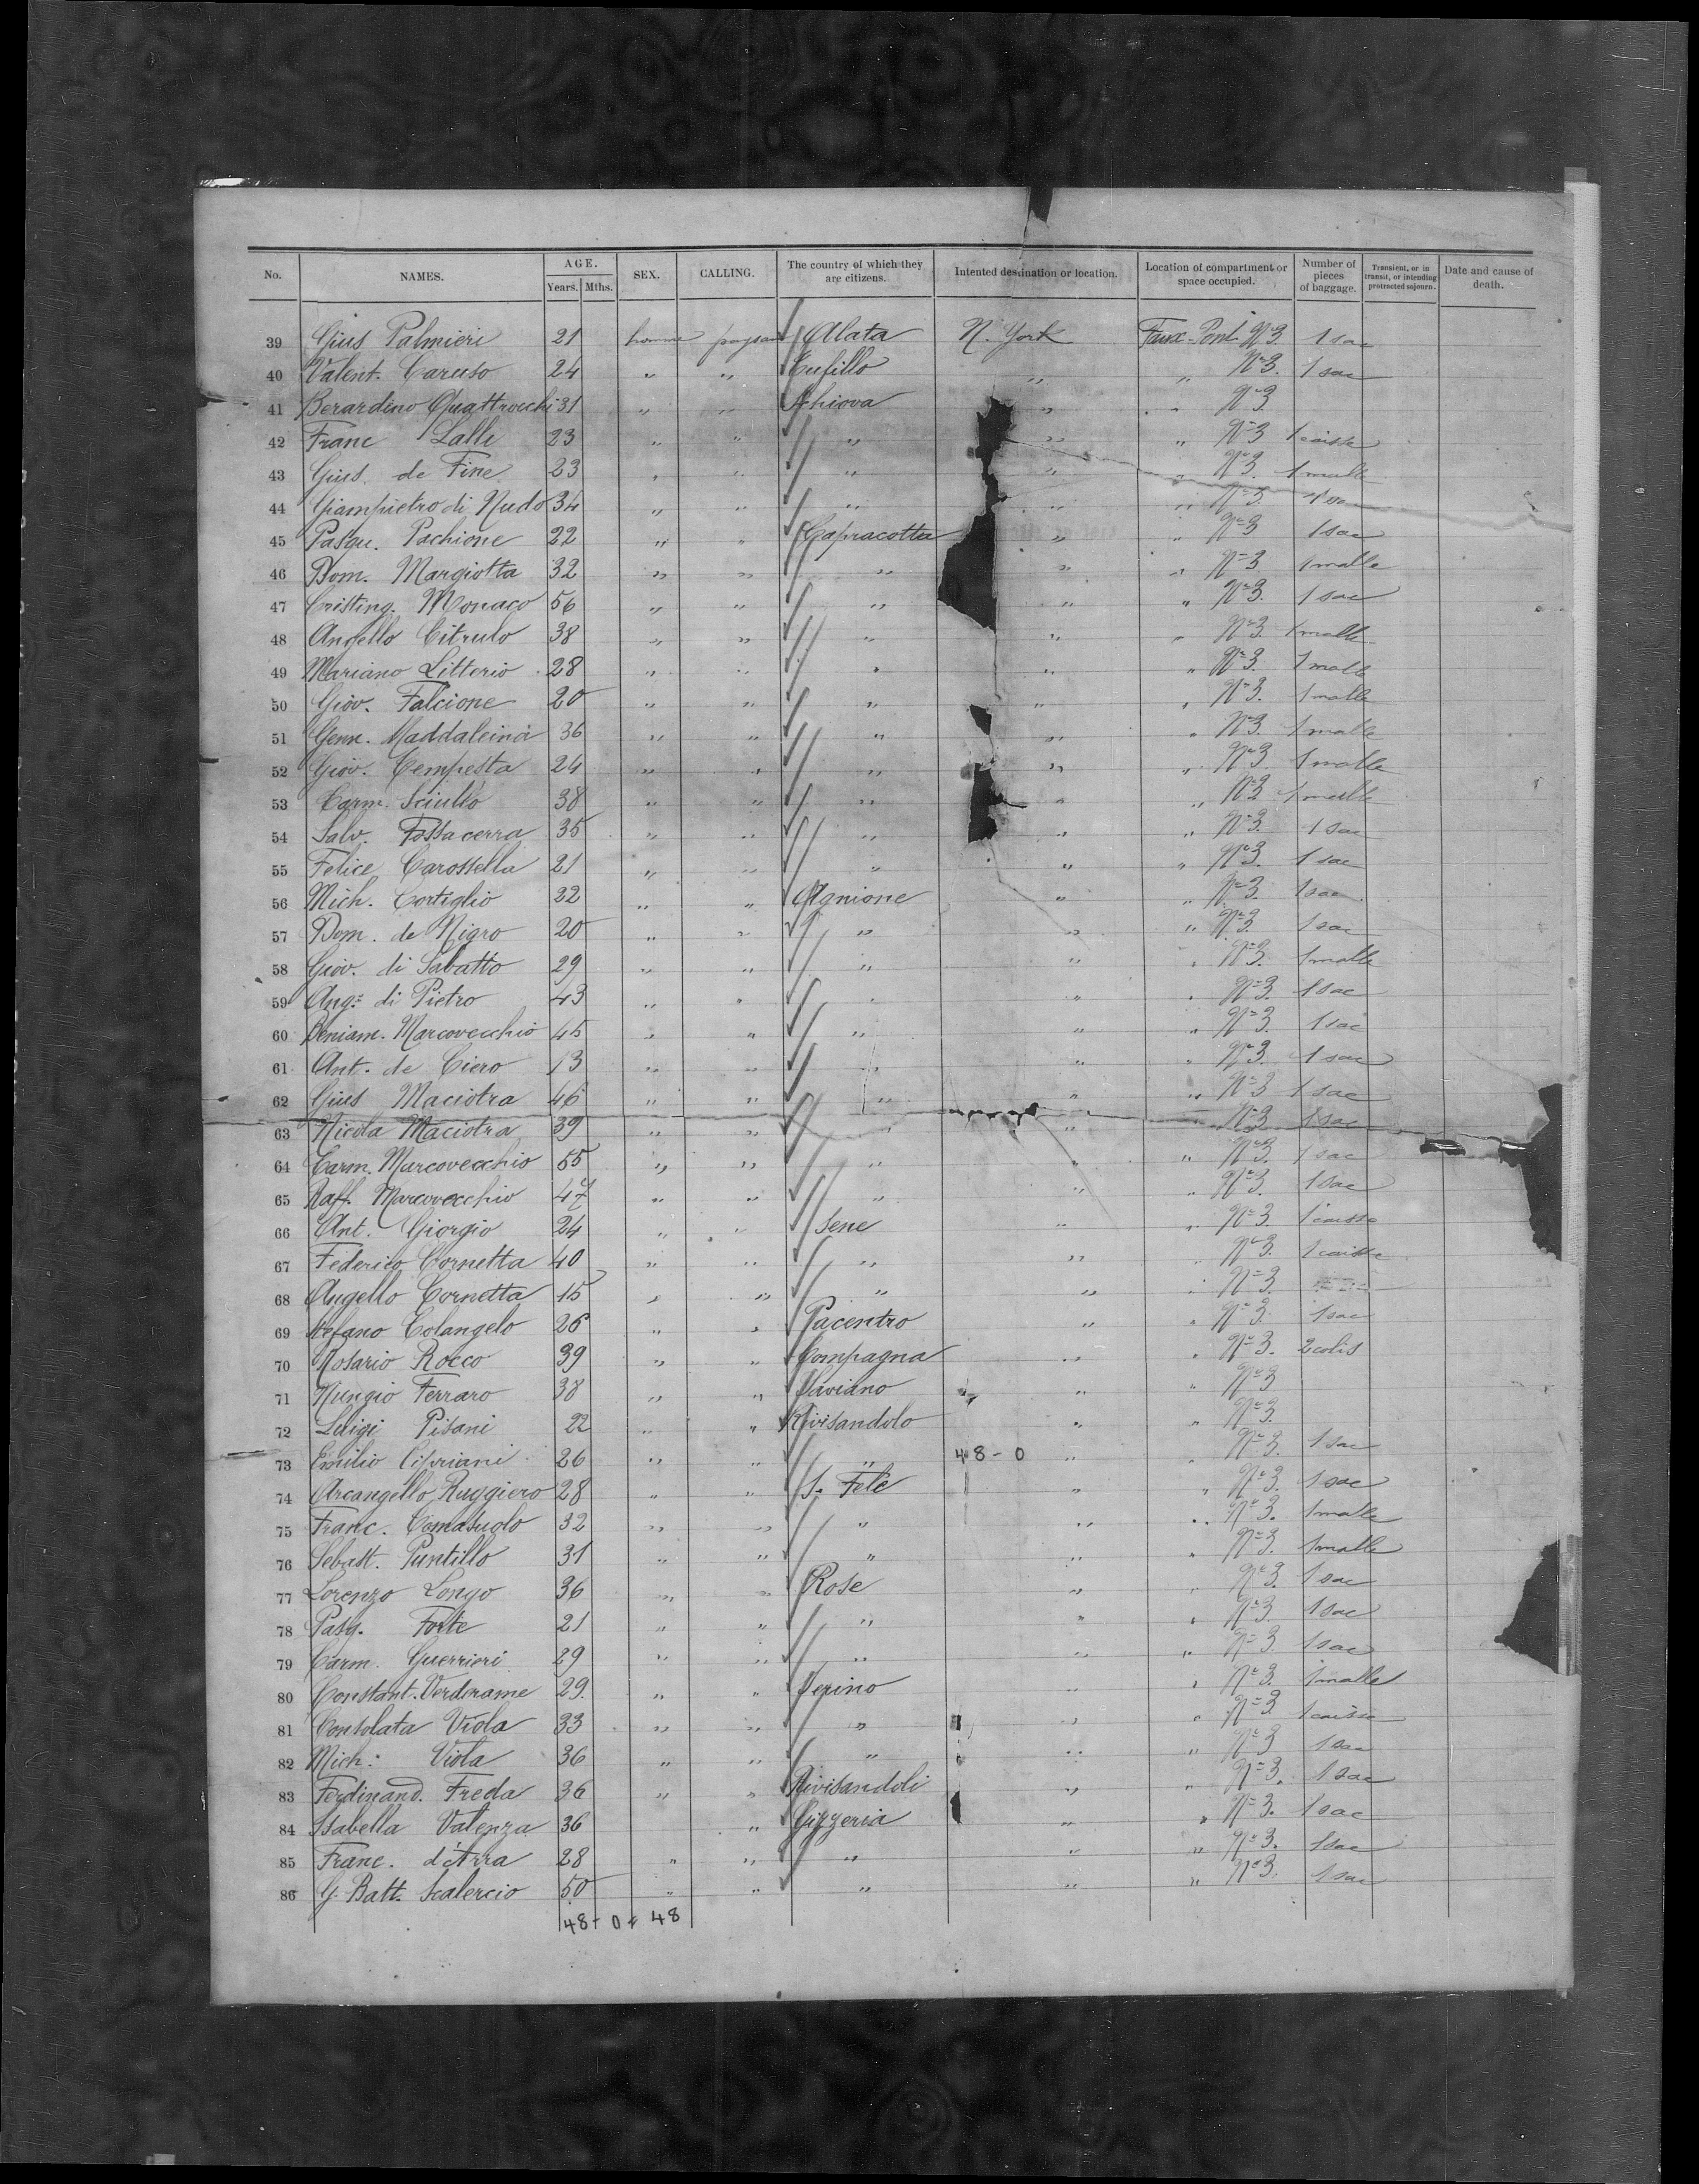 No. NAMES. AGE. Years. Mths. SEX. CALLING. The country of which they are citizens. Intented destination or location. Location of compartment or space occupied. Number of pieces of baggage. Transient, or in transit, or intending protracted sojourn. Date and cause of death.
39 Gius Palmieri 21 homme paysan Alata N. York Faux-Pont Nº 3. 1 sac
40 Valent. Caruso 24 " " Cufillo " " Nº 3. 1 sac
41 Berardino Quattrocchi 31 " " Ahiova " " Nº 3
42 Franc Lalli 23 " " " " " Nº 3 1 caisse
43 Gius. de Fine 23 " " " " " Nº 3 1 malle
44 Giampietro di Nudo 34 " " " " " Nº 3.
45 Pasqu. Pachione 22 " " Capracotta " " Nº 3 1 sac
46 Dom. Margiotta 32 " " " " " Nº 3 1 malle
47 Cristing. Monaco 56 " " " " " Nº 3. 1 sac
48 Angello Citrulo 38 " " " " " Nº 3. 1 malle
49 Mariano Litterio 28 " " " " " Nº 3. 1 malle
50 Giov. Falcione 20 " " " " " Nº 3. 1 malle
51 Genn. Maddaleina 36 " " " " " Nº 3. 1 malle
52 Giov. Tempesta 24 " " " " " Nº 3 1 malle
53 Carm. Sciullo 38 " " " " " Nº 3 1 malle
54 Salv. Fossacerra 35 " " " " " Nº 3. 1 sac
55 Felice Carossella 21 " " " " " Nº 3. 1 sac
56 Mich. Cortiglio 32 " " Agnione " " Nº 3. 1 sac
57 Dom. de Nigro 20 " " " " " Nº 3. 1 sac
58 Giov. di Sabatto 29 " " " " " Nº 3. 1 malle
59 Ang: di Pietro 43 " " " " " Nº 3. 1 sac
60 Beniam. Marcovecchio 45 " " " " " Nº 3. 1 sac
61 Ant. de Ciero 13 " " " " " Nº 3. 1 sac
62 Gius Maciotra 46 " " " " " Nº 3 1 sac
63 Nicola Maciotra 39 " " " " " Nº 3 1 sac
64 Carm. Marcovecchio 55 " " " " " Nº 3. 1 sac
65 Raff. Marcovecchio 47 " " " " " Nº 3. 1 sac
66 Ant. Giorgio 24 " " Sene " " Nº 3. 1 caisse
67 Federico Cornetta 40 " " " " " Nº 3. 1 caisse
68 Angello Cornetta 15 " " " " " Nº 3.
69 Stefano Colangelo 26 " " Pacentro " " Nº 3. 1 sac
70 Rosario Rocco 39 " " Compagna " " Nº 3. 2 colis
71 Nunzio Ferraro 38 " " Saviano " " Nº 3
72 Luigi Pisani 22 " " Rivisandolo " " Nº 3.
73 Emilio Cipriani 26 " " " 48 - 0 " " Nº 3. 1 sac
74 Arcangello Ruggiero 28 " " S. Fele " Nº 3. 1 sac
75 Franc. Comasuolo 32 " " " " " Nº 3. 1 malle
76 Sebast. Puntillo 31 " " " " " Nº 3. 1 malle
77 Lorenzo Longo 36 " " Rose " " Nº 3. 1 sac
78 Pasq. Forte 21 " " " " " Nº 3. 1 sac
79 Carm. Guerrieri 29 " " " " " Nº 3 1 sac
80 Constant. Verdirame 29. " " Serino " " Nº 3. 1 malle
81 Consolata Viola 33 " " " " " Nº 3 1 caisse
82 Mich: Viola 36 " " " " " Nº 3 1 sac
83 Ferdinand. Freda 36 " " Rivisandoli " " Nº 3. 1 sac
84 Isabella Valenza 36 " Gizzeria " " Nº 3. 1 sac
85 Franc. d'Arra 28 " " " " " Nº 3. 1 sac
86 G. Batt. Scalercio 50 " " " " " Nº 3. 1 sac
48 - 0 = 48